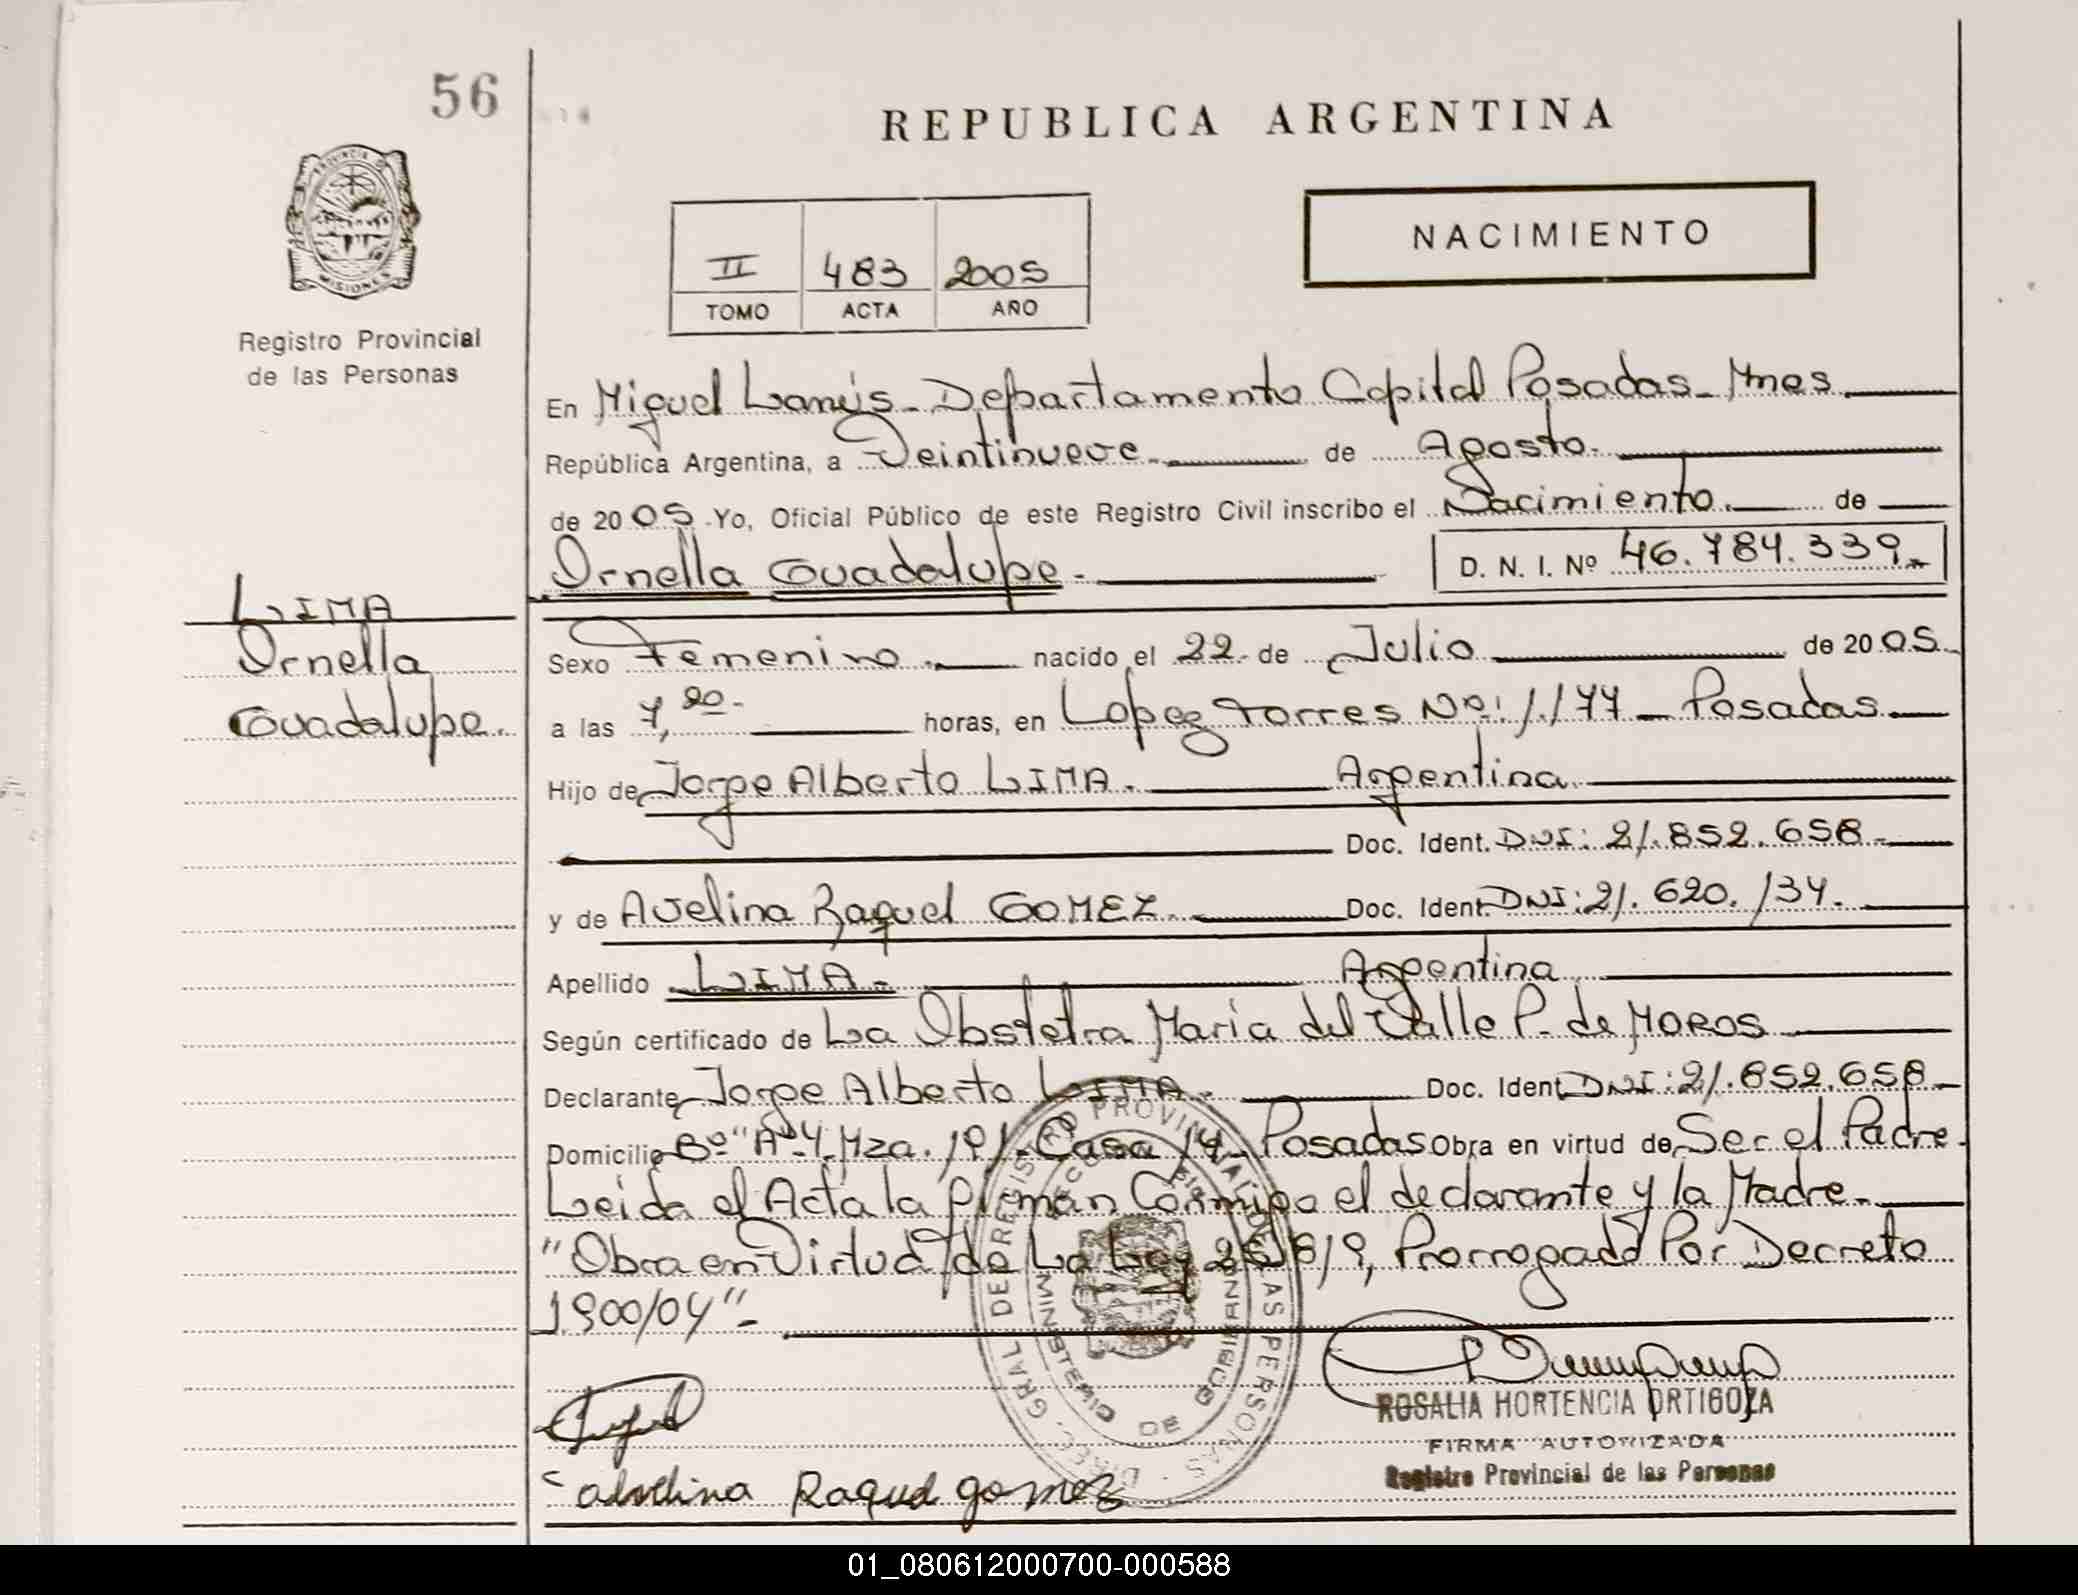 56
REPUBLICA ARGENTINA
PROVINCIA DE
MISIONES
Registro Provincial
de las Personas
NACIMIENTO
II 483 2005
TOMO ACTA AÑO
En Miguel Lanús - Departamento Capital Posadas - Mnes
República Argentina, a Veintinueve de Agosto.
de 2005 Yo, Oficial Público de este Registro Civil inscribo el Nacimiento. de
Ornella Guadalupe. D. N. I. Nº 46.784.339.
LIMA
Ornella
Guadalupe.
Sexo Femenino. nacido el 22 de Julio de 2005.
a las 7,20 horas, en Lopez Torres Nº: 1.177 - Posadas
Hijo de Jorge Alberto LIMA. Argentina
Doc. Ident. DNI: 21.852.658
y de Avelina Raquel GOMEZ. Doc. Ident. DNI: 21.620.134.
Apellido LIMA. Argentina
Según certificado de La Obstetra Maria del Valle P. de MOROS
Declarante Jorge Alberto LIMA. Doc. Ident. DNI: 21.852.658
Domicilio Bº "A-4 Mza. 191 Casa 14 Posadas Obra en virtud de Ser el Padre.
Leida el Acta la firman Conmigo el declarante y la Madre.
"Obra en Virtud de La Ley 25819, Prorrogado Por Decreto
1900/04"
ROSALIA HORTENCIA ORTIGOZA
FIRMA AUTORIZADA
Registro Provincial de las Personas
Avelina Raquel gomez
DIREC. GRAL. DE REGISTRO PROVINCIAL DE LAS PERSONAS
MINISTERIO DE GOBIERNO
01_080612000700-000588